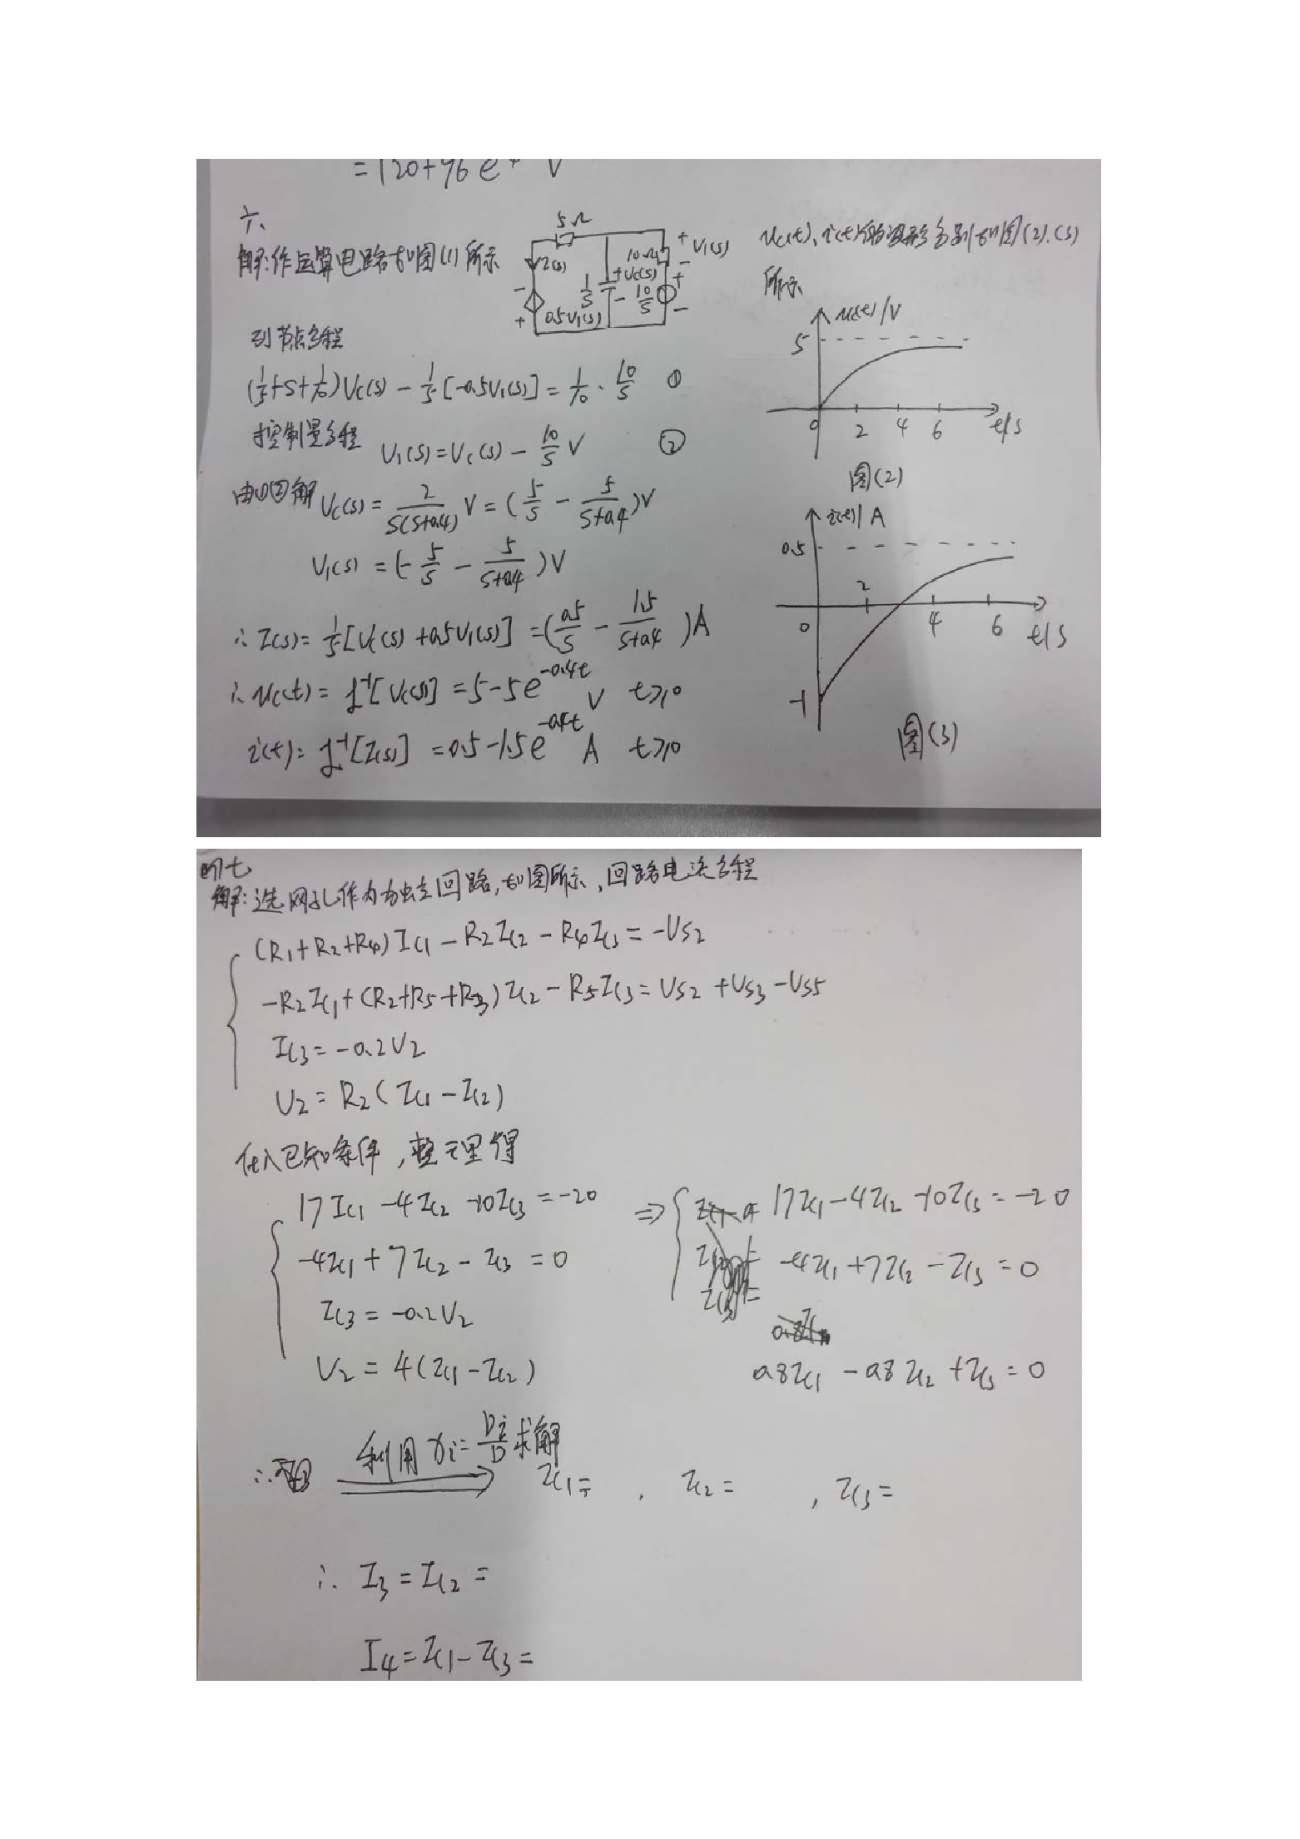 =120+96e V
六、
解:作运算电路如图(1)所示
5Ω
I(s)
10Ω
+
V₁(s)
-
1/s
+
Vc(s)
-
10/s
+
-
-
+
0.5V₁(s)
列节点方程
(1/5+s+1/10)Vc(s) - 1/5[-0.5V₁(s)] = 1/10 · 10/s ①
控制量方程 V₁(s)=Vc(s) - 10/s V ②
由①②解 Vc(s) = 2/(s(s+0.4)) V = (5/s - 5/(s+0.4))V
V₁(s) = (-5/s - 5/(s+0.4))V
∴ I(s) = 1/5[Vc(s)+0.5V₁(s)] = (0.5/s - 1.5/(s+0.4))A
∴ uc(t) = ℒ⁻¹[Vc(s)] = 5-5e^{-0.4t} V t≥0
i(t) = ℒ⁻¹[I(s)] = 0.5-1.5e^{-0.4t} A t≥0
uc(t)、i(t)的波形分别如图(2).(3)
所示
uc(t)/V
5
0 2 4 6 t/s
图(2)
i(t)/A
0.5
2
0 4 6 t/s
-1
图(3)
七
解:选网孔作为独立回路,如图所示,回路电流方程
(R₁+R₂+R₄)Il1 - R₂Il2 - R₄Il3 = -Us2
-R₂Il1 + (R₂+R5+R3)Il2 - R5Il3 = Us2 + Us3 - Us5
Il3 = -0.2U₂
U₂ = R₂(Il1 - Il2)
代入已知条件,整理得
17Il1 - 4Il2 - 10Il3 = -20
-4Il1 + 7Il2 - Il3 = 0
Il3 = -0.2U₂
U₂ = 4(Il1 - Il2)
⇒ 17Il1 - 4Il2 - 10Il3 = -20
-4Il1 + 7Il2 - Il3 = 0
0.8Il1 - 0.8Il2 + Il3 = 0
∴ 利用 xi = Di/D 求解
Il1 = , Il2 = , Il3 =
∴ I3 = Il2 =
I4 = Il1 - Il3 =